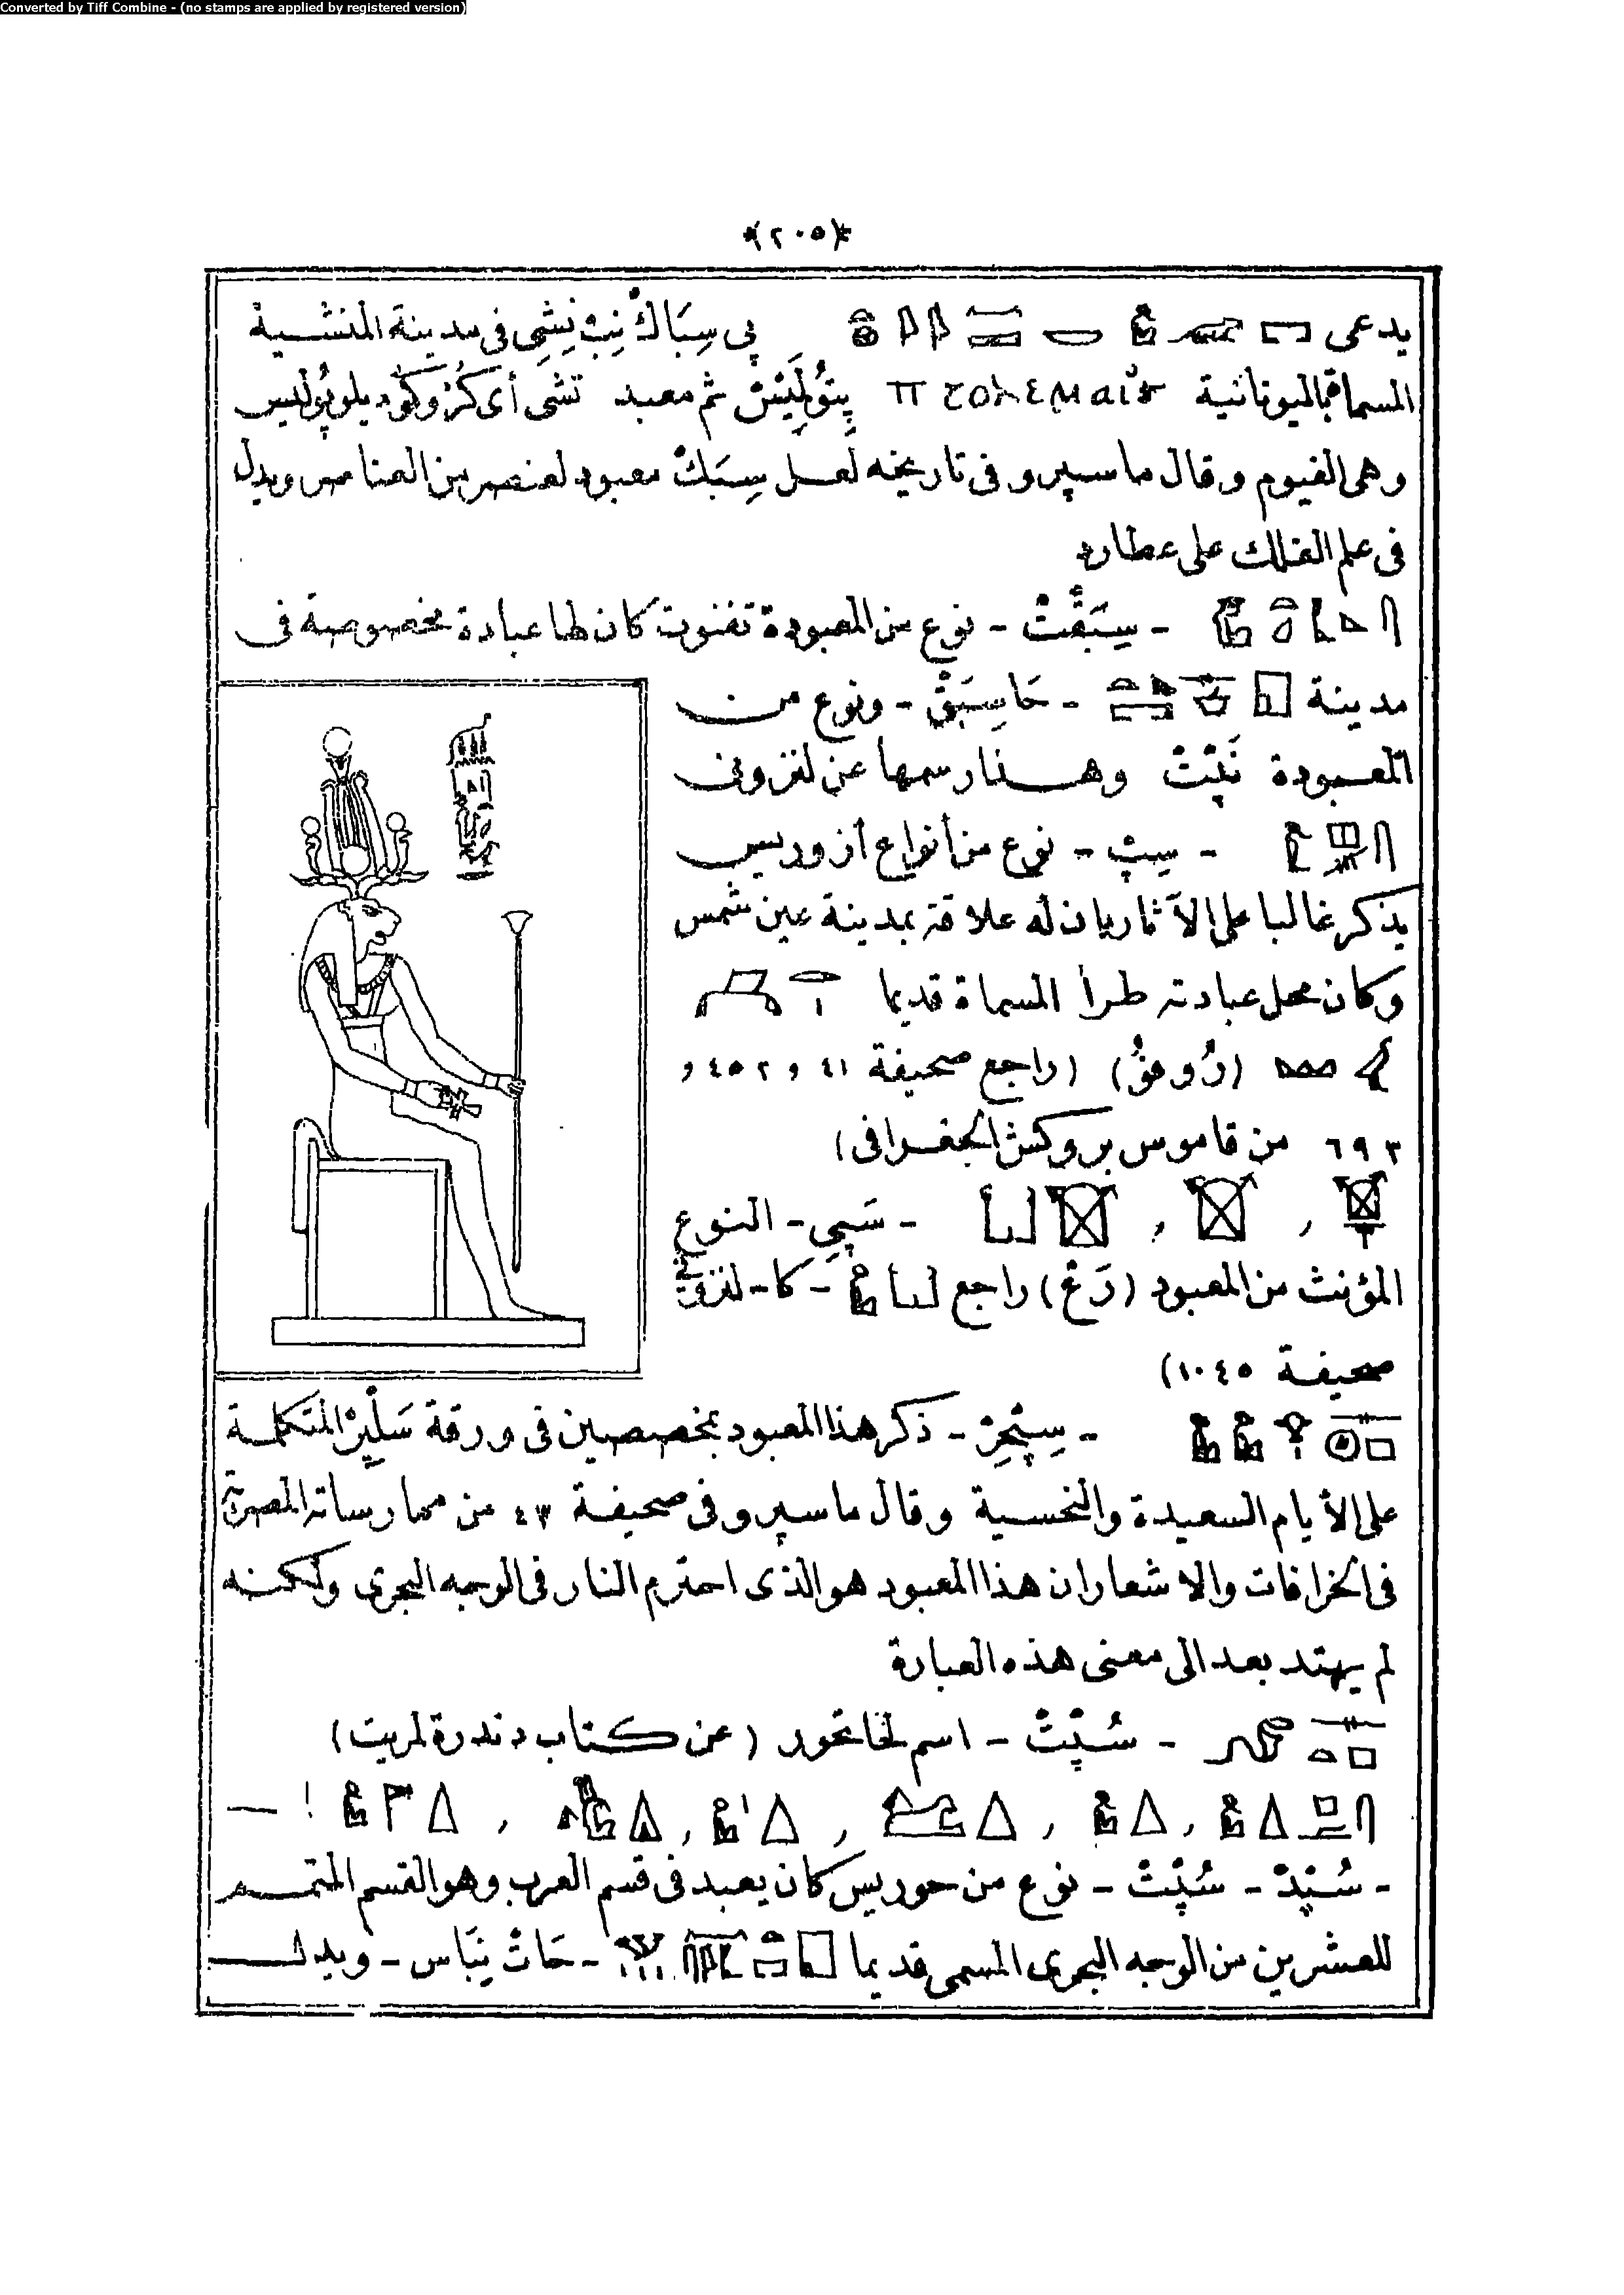 Converted by Tiff Combine - (no stamps are applied by registered version)
(٢٠٥)
يدعى پى سِبَاكْ نِبْ نِشِى فى مدينة المنشية
المسماة باليونانية پِتُولِيَيْسْ ثم معبد تشى أى كُرُوكُودِيلوپُوليس
وهى الفيوم وقال ماسپرو فى تاريخه لعل سِبَكْ معبود لعنصر من العناصر ويدل
فى علم الفلك على عطارد
- سِبَقْتْ - نوع من المعبودة تفنوت كان لها عبادة مخصوصة فى
مدينة - حَاسِبَقْ - ونوع من
المعبودة نَيْتْ وهنا رسمها عن لنزونى
- سِپْ - نوع من أنواع أزوريس
يذكر غالبا على الآثار بان له علاقة بمدينة عين شمس
وكان محل عبادته طرا المسماة قديما
(رُوفُو) (راجع صحيفة ٤١ و ٤٥٢ و
٦٩٣ من قاموس بروكش الجغرافى)
، ، - سَپِى - النوع
المؤنث من المعبود (رَعْ) راجع - كا - لنزونى
صحيفة ١٠٤٥)
- سِپْخِرْ - ذكر هذا المعبود بمخصصين فى ورقة سَلِيْر المتكلمة
على الأيام السعيدة والنحسية وقال ماسپرو فى صحيفة ٤٣ من ممارساته المصرية
فى الخرافات والاشعار ان هذا المعبود هو الذى احترم النار فى الوجه البحرى ولكنه
لم يهتد بعد الى معنى هذه العبارة
- سُپْتْ - اسم لخاتحور (عن كتاب دندرة لمريت)
- سُپْدْ - سُپْتْ - نوع من حوريس كان يعبد فى قسم العرب وهو القسم المتمم
للعشرين من الوجه البحرى المسمى قديما - حَاتْ نِبَاس - ويدل